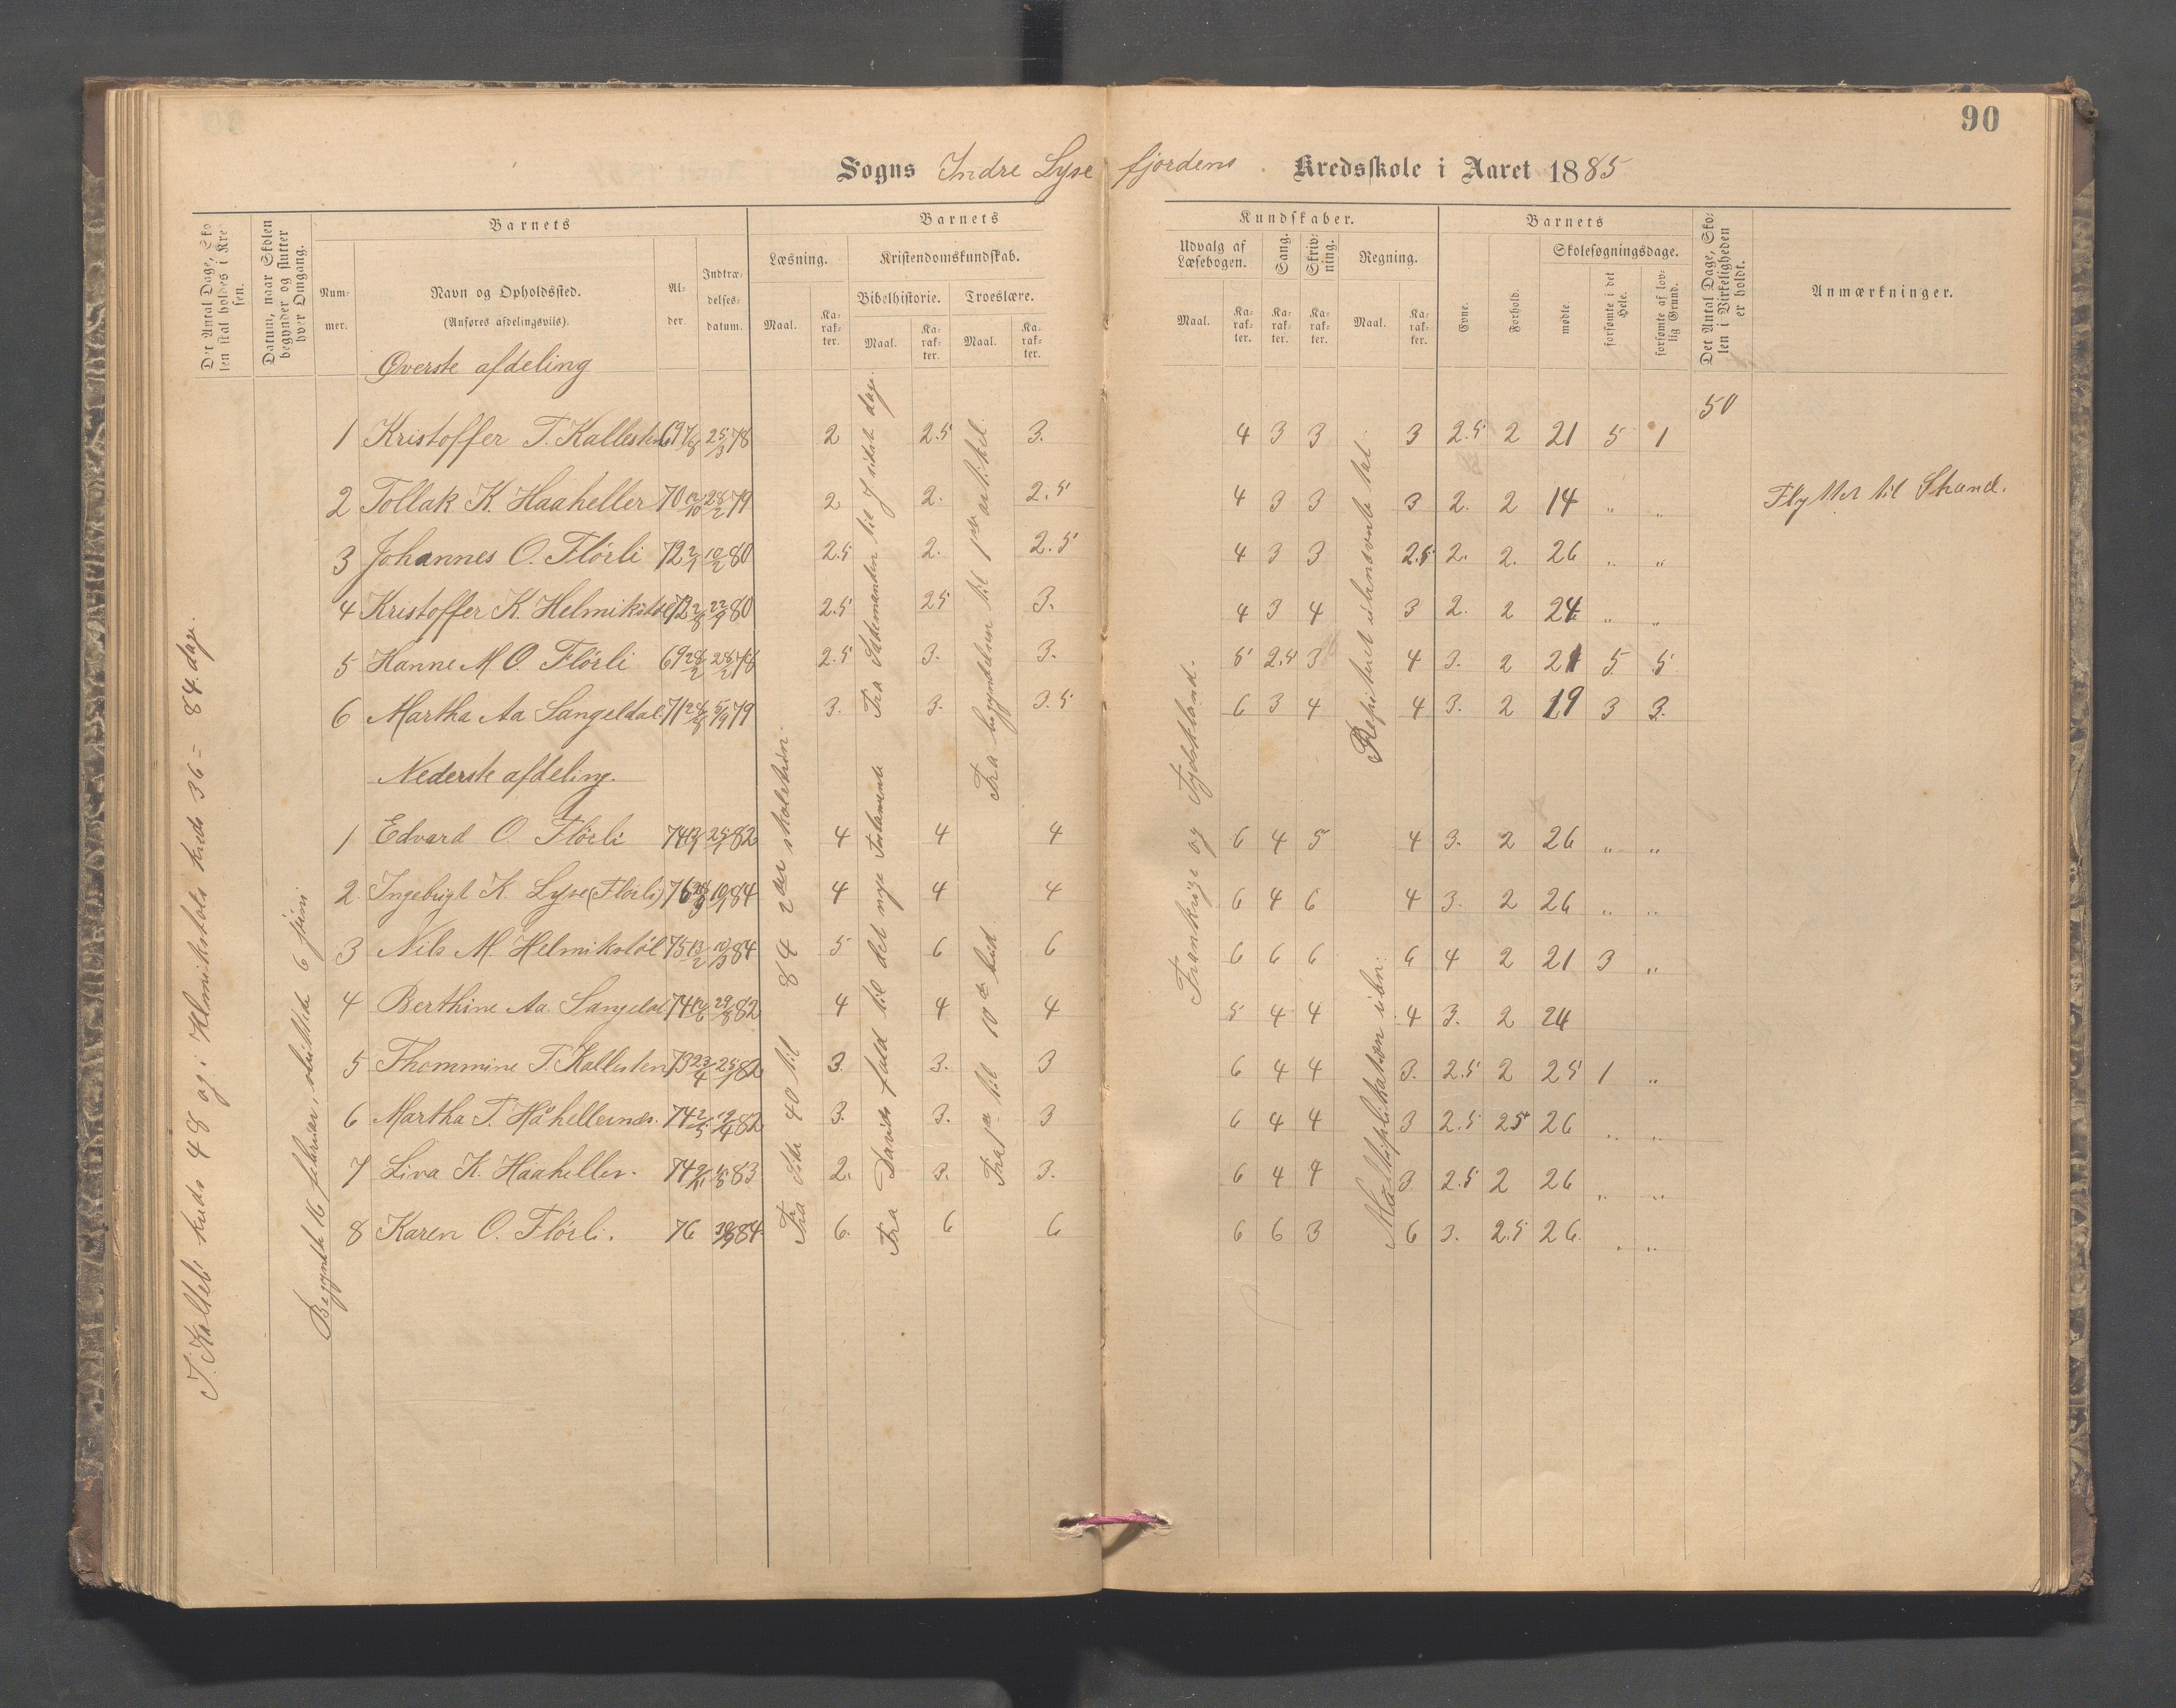 90
Sogns Indre Lysefjordens Kredsskole i Aaret 1885
Det Antal Dage, Skolen skal holdes i Kredsen.
Datum, naar Skolen begynder og slutter hver Omgang.
Barnets
Nummer.
Navn og Opholdssted.
(Anføres afdelingsvils).
Alder.
Indtrædelsesdatum.
Barnets
Læsning.
Maal.
Karakter.
Kristendomskundskab.
Bibelhistorie.
Maal.
Karakter.
Troeslære.
Maal.
Karakter.
Kundskaber.
Udvalg af Læsebogen.
Maal.
Karakter.
Sang.
Karakter.
Skrivning.
Karakter.
Regning.
Maal.
Karakter.
Barnets
Evne.
Forhold.
Skolesøgningsdage.
mødte
forsømte i det Hele.
forsømte af lovlig Grund.
Det Antal Dage, Skolen i Virkeligheden er holdt.
Anmærkninger.
Øverste afdeling
50
1 Kristoffer T. Kallesten 69 7/8 25/3 78 2 2.5 3. 4 3 3 3 2.5 2 21 5 1
2 Tollak K. Haaheller 70 12/10 28/2 79 2 2. 2.5 4 3 3 3 2. 2 14 " " Flyttet til Strand.
3 Johannes O. Flörli 72 2/1 10/2 80 2.5 2. 2.5 4 3 3 2.5 2. 2. 26 " "
4 Kristoffer K. Helmikstöl 72 80 2.5 25 3. 4 3 4 3 2. 2 24 " "
5 Hanne M O. Flörli 69 28/2 28/2 78 2.5 3. 3. 5 2.5 3 4 3. 2 21 5 5
6 Martha Aa Sangeldal 71 5/9 79 3. 3. 3.5 6 3 4 4 3. 2 19 3 3.
Nederste afdeling.
1 Edvard O. Flörli 74 82 4 4 4 6 4 5 4 3. 2 26 " "
2. Ingebrigt K. Lyse (Flörli) 76 84 4 4 4 6 4 6 4 3. 2 26 " "
3 Nils M. Helmikstöl 75 13/2 84 5 6 6 6 6 6 6 4 2 21 3 "
4 Berthine Aa. Sangeldal 74 12/6 29/8 82 4 4 4 5 4 4 4 3. 2 24
5 Thommine T. Kallesten 73 23/4 82 3. 3. 3 6 4 4 3. 2.5 2 25 1 "
6 Martha T. Håhellernæs. 74 2/5 82 3. 3. 3 6 4 4 3 2.5 25 26 " "
7 Liva K. Haaheller. 74 2/11 83 2. 3. 3. 6 4 4 3 2.5 2 26 " "
8 Karen O. Flörli. 76 84 6. 6 6 6 6 3 6 3. 2.5 26. " "
I Kalleli kreds 48 og i Helmikstöls kreds 36 = 84. dage.
Begyndte 16 februar, sluttede 6 juni
Fra side 40 til 84 2den skoletrin.
Fra Davids fald til det nye testamente
Fra Sædemanden til J sidste dage.
Fra 1ste til 10de bud
Fra begyndelsen til 1ste artikel.
Frankrige og Tydskland.
Multiplikation ubn:
Repeteret ubenævnte tal.